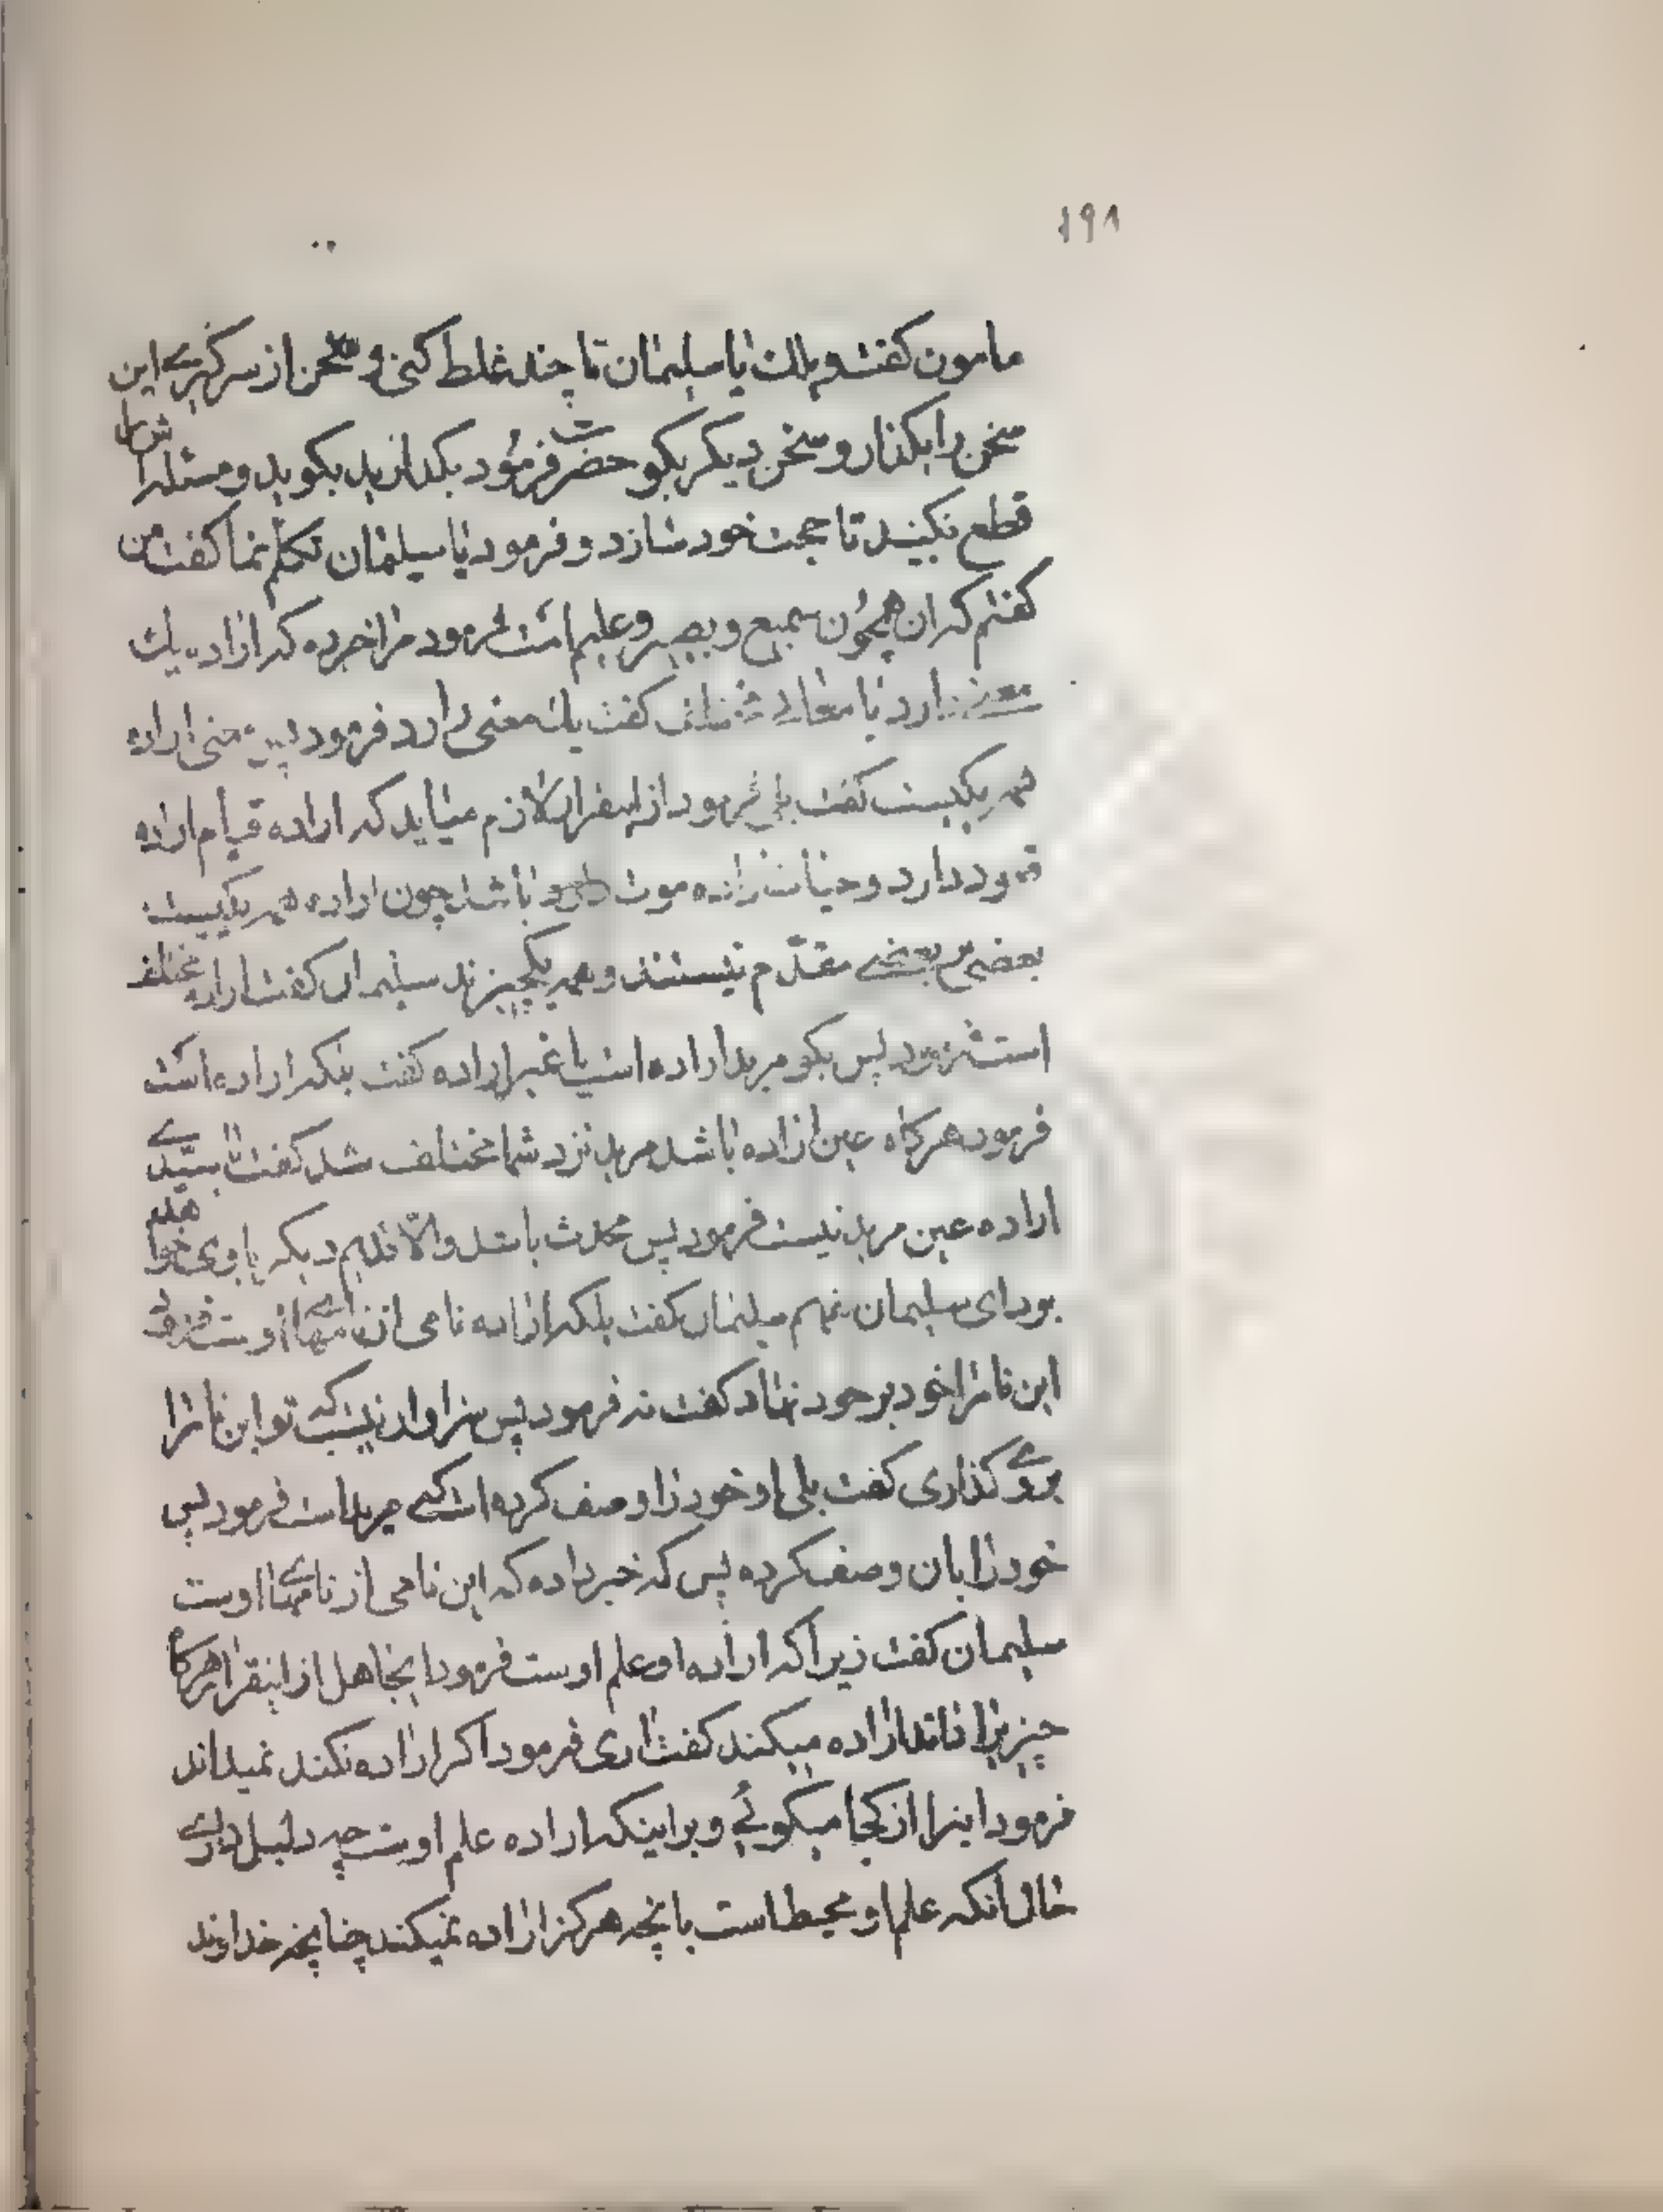 ۱۹۸
مامون کفت ویلك یا سلیمان تا چند غلط کنی و سخن از سر کیری این
سخن را بکذار و سخن دیکر بکو حضرت فرمود بکذارید بکوید و مسئله اش را
قطع نکنید تا حجت خود سازد و فرمود یا سلیمان تکلم نما کفت من
کفتم که ان همچون سمیع و بصیر و علیم است فرمود مرا خبر ده که اراده یك
معنی دارد یا معانی مختلف کفت یك معنی دارد فرمود پس معنی اراده
همه یکیست کفت بلی فرمود از اینقرار لازم میاید که اراده قیام اراده
قعود دارد و حیات اراده موت باشد چون اراده همه یکیست
بعضی بر بعضی مقدّم نیستند و همه یکچیزند سلیمان کفت اراده مختلف
است فرمود پس بکو مرید اراده است یا غیر اراده کفت بلکه اراده است
فرمود هرکاه عین اراده باشد مرید نزد شما مختلف شد کفت یا سیّدی
اراده عین مرید نیست فرمود پس محدث باشد والّا قدیم دیکر با وی خواهد
بود ای سلیمان بفهم سلیمان کفت بلکه اراده نامی از نامهای اوست فرمود
این نامرا خود بر خود نهاد کفت نه فرمود پس سزاوار نیست که تو این نامرا
بروی کذاری کفت بلی او خود را وصف کرده است که مرید است فرمود پس
خود را بان وصف کرده پس که خبر داده که این نامی از نامهای اوست
سلیمان کفت زیرا که اراده او علم اوست فرمود ایجاهل از اینقرار هرکاه
چیزیرا داند اراده میکند کفت اری فرمود اکر اراده نکند نمیداند
فرمود اینرا از کجا میکوئی و بر اینکه اراده علم اوست چه دلیل داری
حال انکه علم او محیط است بانچه هرکز اراده نمیکند چنانچه خداوند